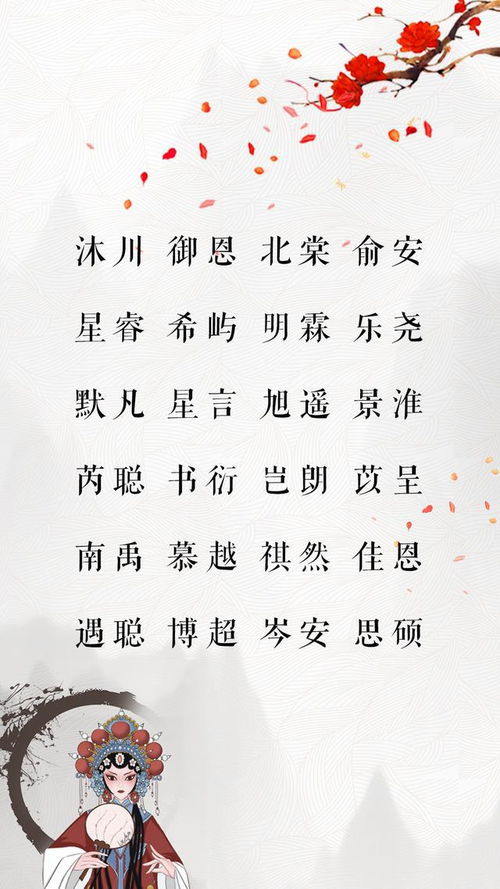 沐川 御恩 北棠 俞安
星睿 希屿 明霖 乐尧
默凡 星言 旭遥 景淮
芮聪 书衍 岂朗 苡呈
南禹 慕越 祺然 佳恩
遇聪 博超 岑安 思硕